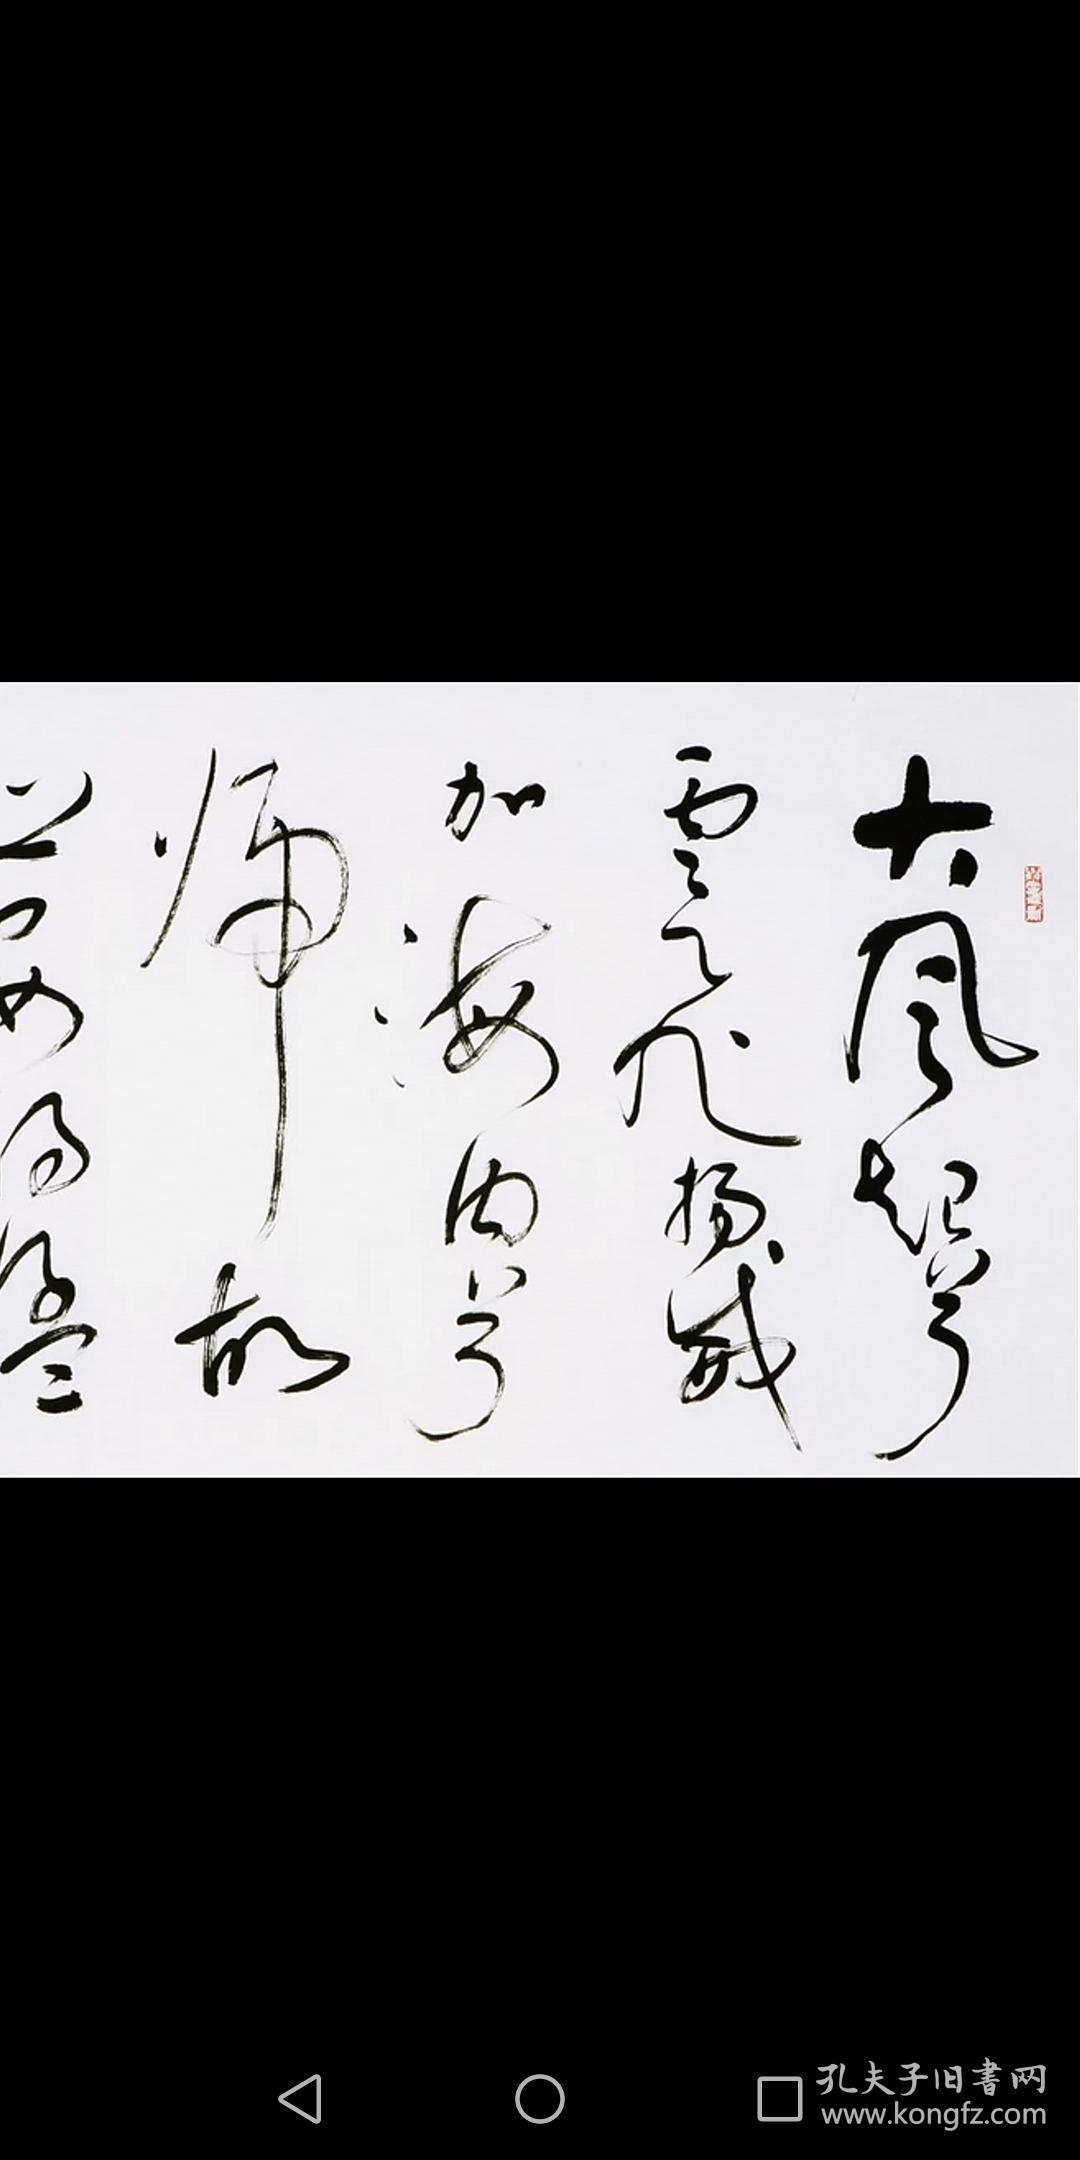 大風起兮
雲飛揚威
加海内兮
歸故
安得猛
孔夫子旧書网
www.kongfz.com